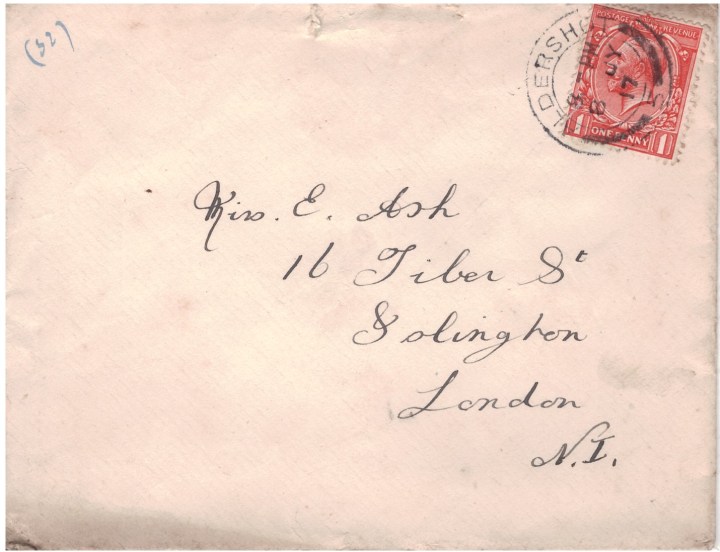 (52)
POSTAGE REVENUE
1 ONE PENNY 1
ALDERSHOT
Miss. E. Ash
16 Tiber St
Islington
London
N.I.